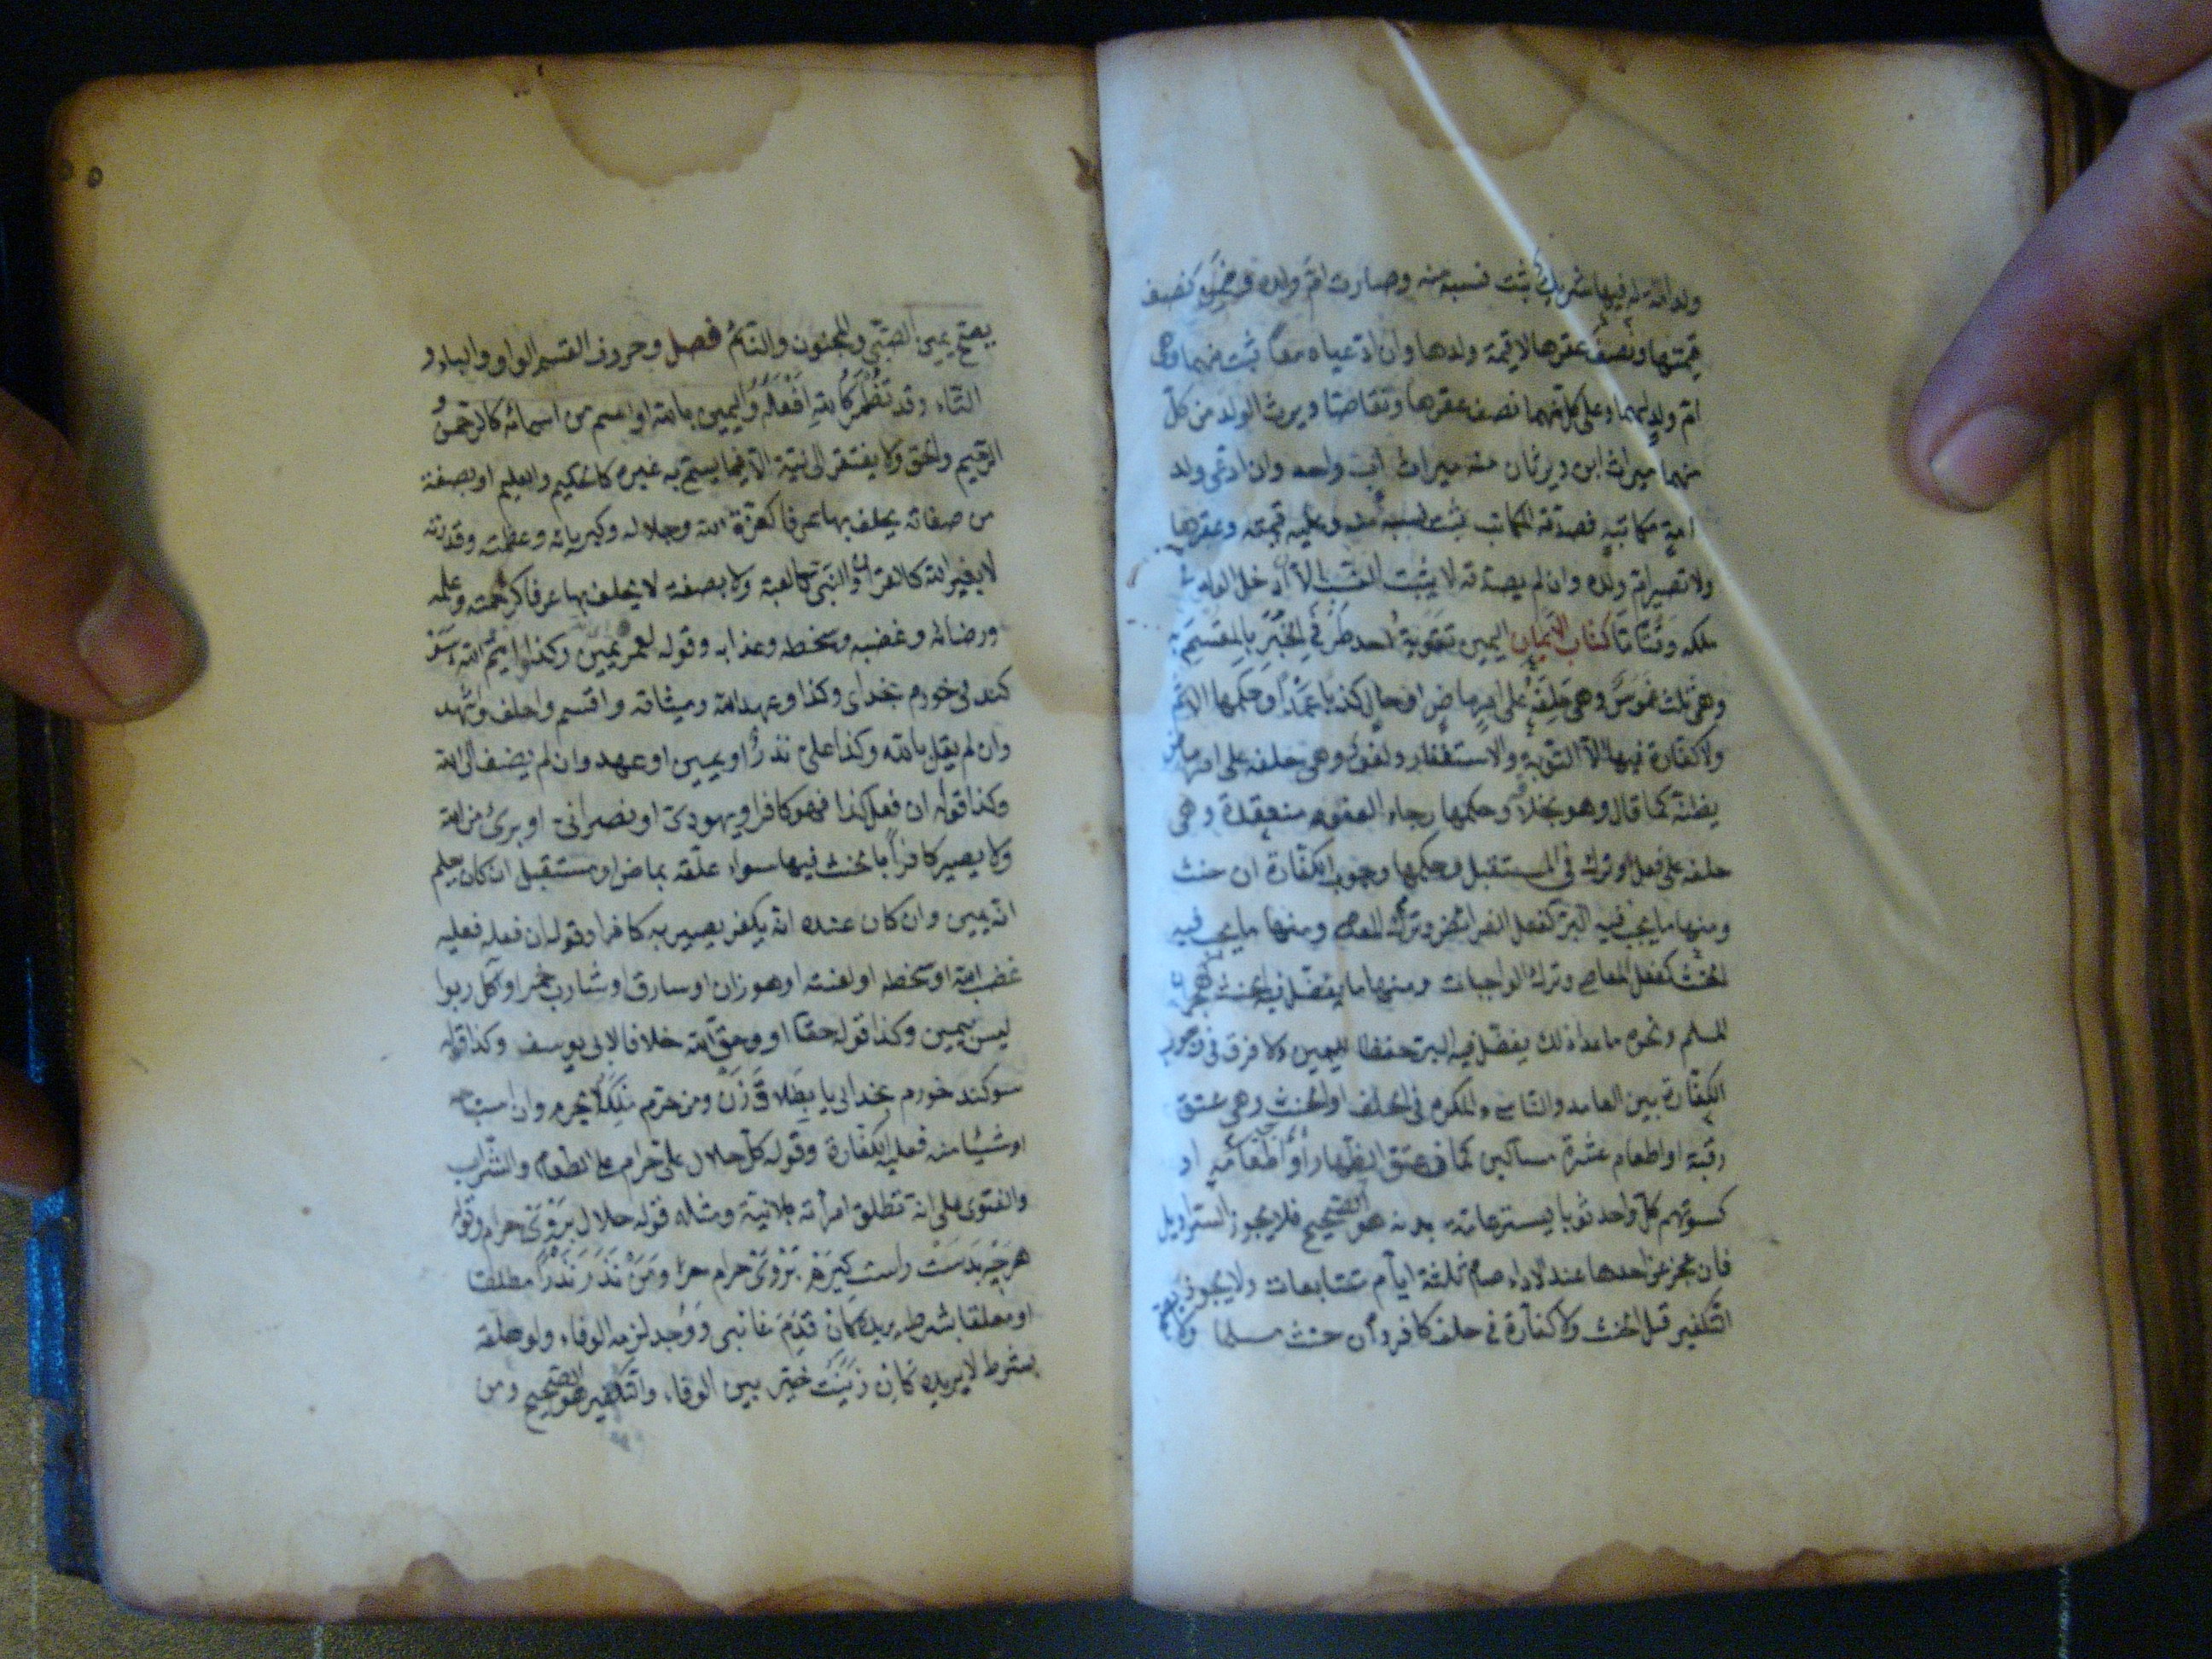 ولد امة له فيها شريك ثبت نسبه منه وصارت ام ولده وضمن نصف
قيمتها ونصف عقرها لا قيمة ولدها وان ادعياه معا ثبت منهما وهي
ام ولد لهما وعلى كل منهما نصف عقرها وتقاصا ويرث الولد من كل
منهما ميراث ابن ويرثان منه ميراث اب واحد وان ادعى ولد
امة مكاتبه فصدقه المكاتب ثبت نسبه منه وعليه قيمته وعقرها
ولا تصير ام ولده وان لم يصدقه لا يثبت النسب الا اذا دخل الولد في
ملكه وقتا ما كتاب الايمان اليمين تقوية احد طرفي الخبر بالمقسم به
وهي ثلث غموس وهي حلفه على امر ماض او حال كذبا عمدا وحكمها الاثم
ولا كفارة فيها الا التوبة والاستغفار ولغو وهي حلفه على امر ماض
يظنه كما قال وهو بخلافه وحكمها رجاء العفو ومنعقدة وهي
حلفه على فعل او ترك في المستقبل وحكمها وجوب الكفارة ان حنث
ومنها ما يجب فيه البر كفعل الفرائض وترك المعاصي ومنها ما يجب فيه
الحنث كفعل المعاصي وترك الواجبات ومنها ما يفضل فيه الحنث كهجران
المسلم ونحوه وما عدا ذلك يفضل فيه البر حفظا لليمين ولا فرق في وجوب
الكفارة بين العامد والناسي والمكره في الحلف او الحنث وهي عتق
رقبة او اطعام عشرة مساكين كما في عتق الظهار او اطعامه او
كسوتهم كل واحد ثوبا يستر عامة بدنه هو الصحيح فلا يجوز السراويل
فان عجز عن احدها عند الاداء صام ثلثة ايام متتابعات ولا يجوز
التكفير قبل الحنث ولا كفارة في حلف كافر وان حنث مسلما ولا
يصح يمين الصبي والمجنون والنائم فصل وحروف القسم الواو والباء و
التاء وقد تضمر كالله افعله واليمين بالله او اسم من اسمائه كالرحمن و
الرحيم والحق ولا يفتقر الى نية الا فيما يسمى به غيره كالحكيم والعليم او بصفة
من صفاته يحلف بها عرفا كعزة الله وجلاله وكبريائه وعظمته وقدرته
لا بغير الله كالقرآن والنبي والكعبة ولا بصفة لا يحلف بها عرفا كرحمته وعلمه
ورضائه وغضبه وسخطه وعذابه وقوله لعمر الله يمين وكذا وايم الله وسو
كند مي خورم بخداي وكذا وعهد الله وميثاقه واقسم واحلف واشهد
وان لم يقل بالله وكذا علي نذر او يمين او عهد وان لم يضف الى الله
وكذا قوله ان فعل كذا فهو كافر او يهودي او نصراني او بريء من الله
ولا يصير كافرا بالحنث فيها سواء علقه بماض او مستقبل ان كان يعلم
انه يمين وان كان عنده انه يكفر يصير به كافرا وقوله ان فعله فعليه
غضب الله او سخطه او لعنته او هو زان او سارق او شارب خمر او آكل ربوا
ليس بيمين وكذا قوله حقا او وحق الله خلافا لابي يوسف وكذا قوله
سوكند خورم بخداي يا بطلاق زن ومن حرم ملكه لا يحرم وان استباحه
او شيئا منه فعليه الكفارة وقوله كل حلال علي حرام على الطعام والشراب
والفتوى على انه تطلق امرأته بلا نية ومثله قوله حلال بروى حرام وقوله
هرچه بدست راست كيرم بروى حرام ومن نذر نذرا مطلقا
او معلقا بشرط يريده كان قدم غائبي ووجد لزمه الوفاء ولو علقه
بشرط لا يريده كان زنيت خير بين الوفاء والتكفير هو الصحيح ومن